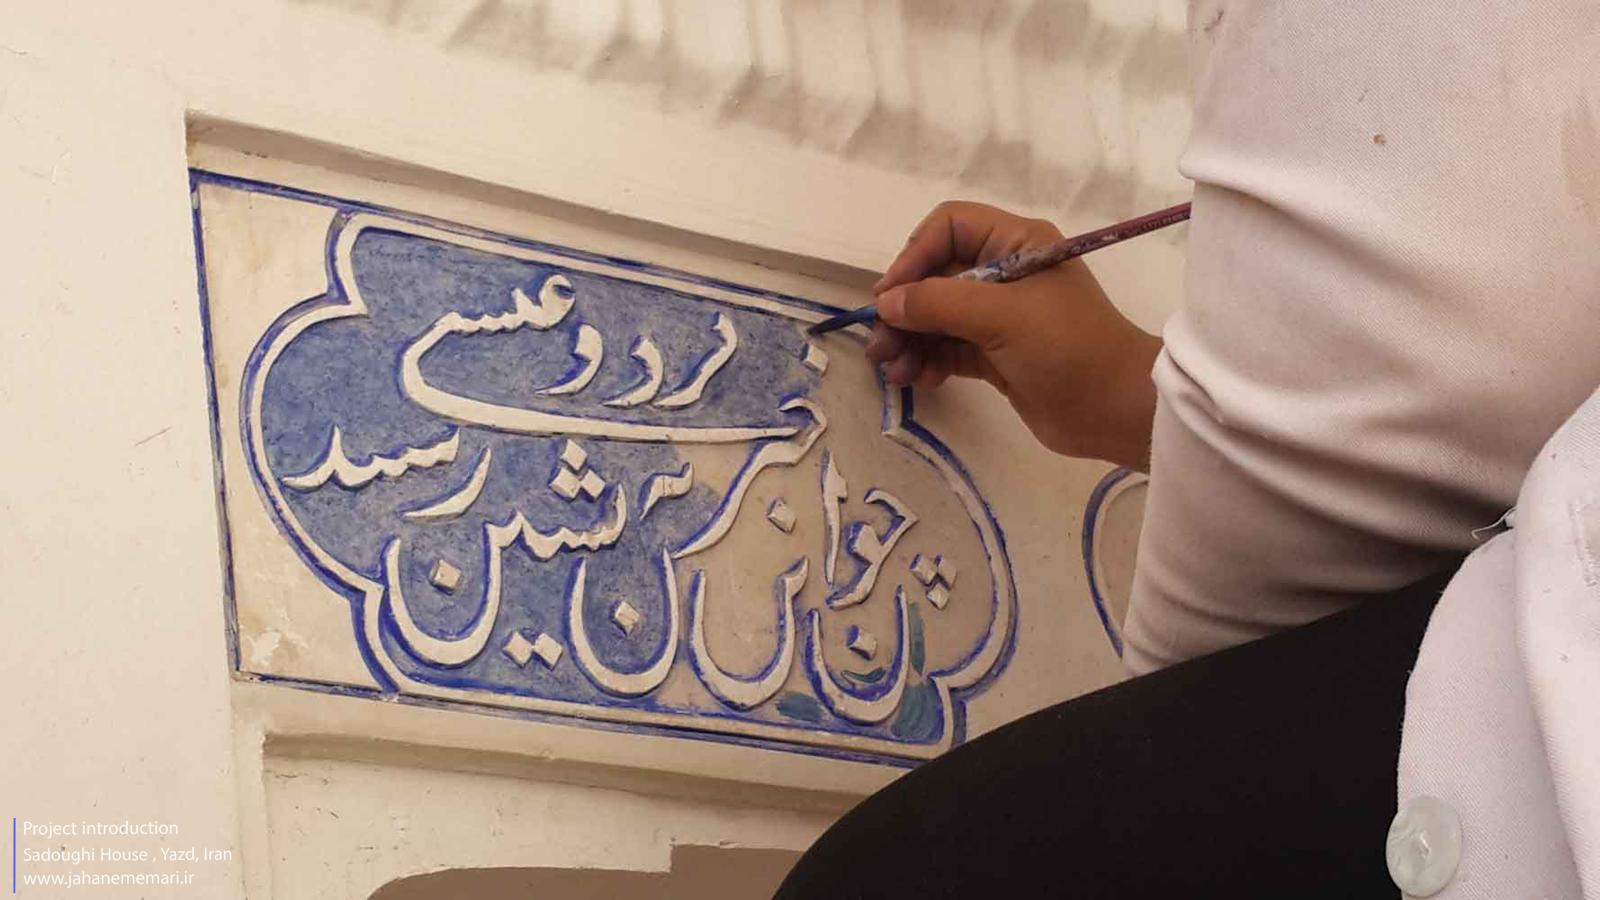 چون این خبر به عیسی گردون نشین رسید
Project introduction
Sadoughi House , Yazd, Iran
www.jahanememari.ir